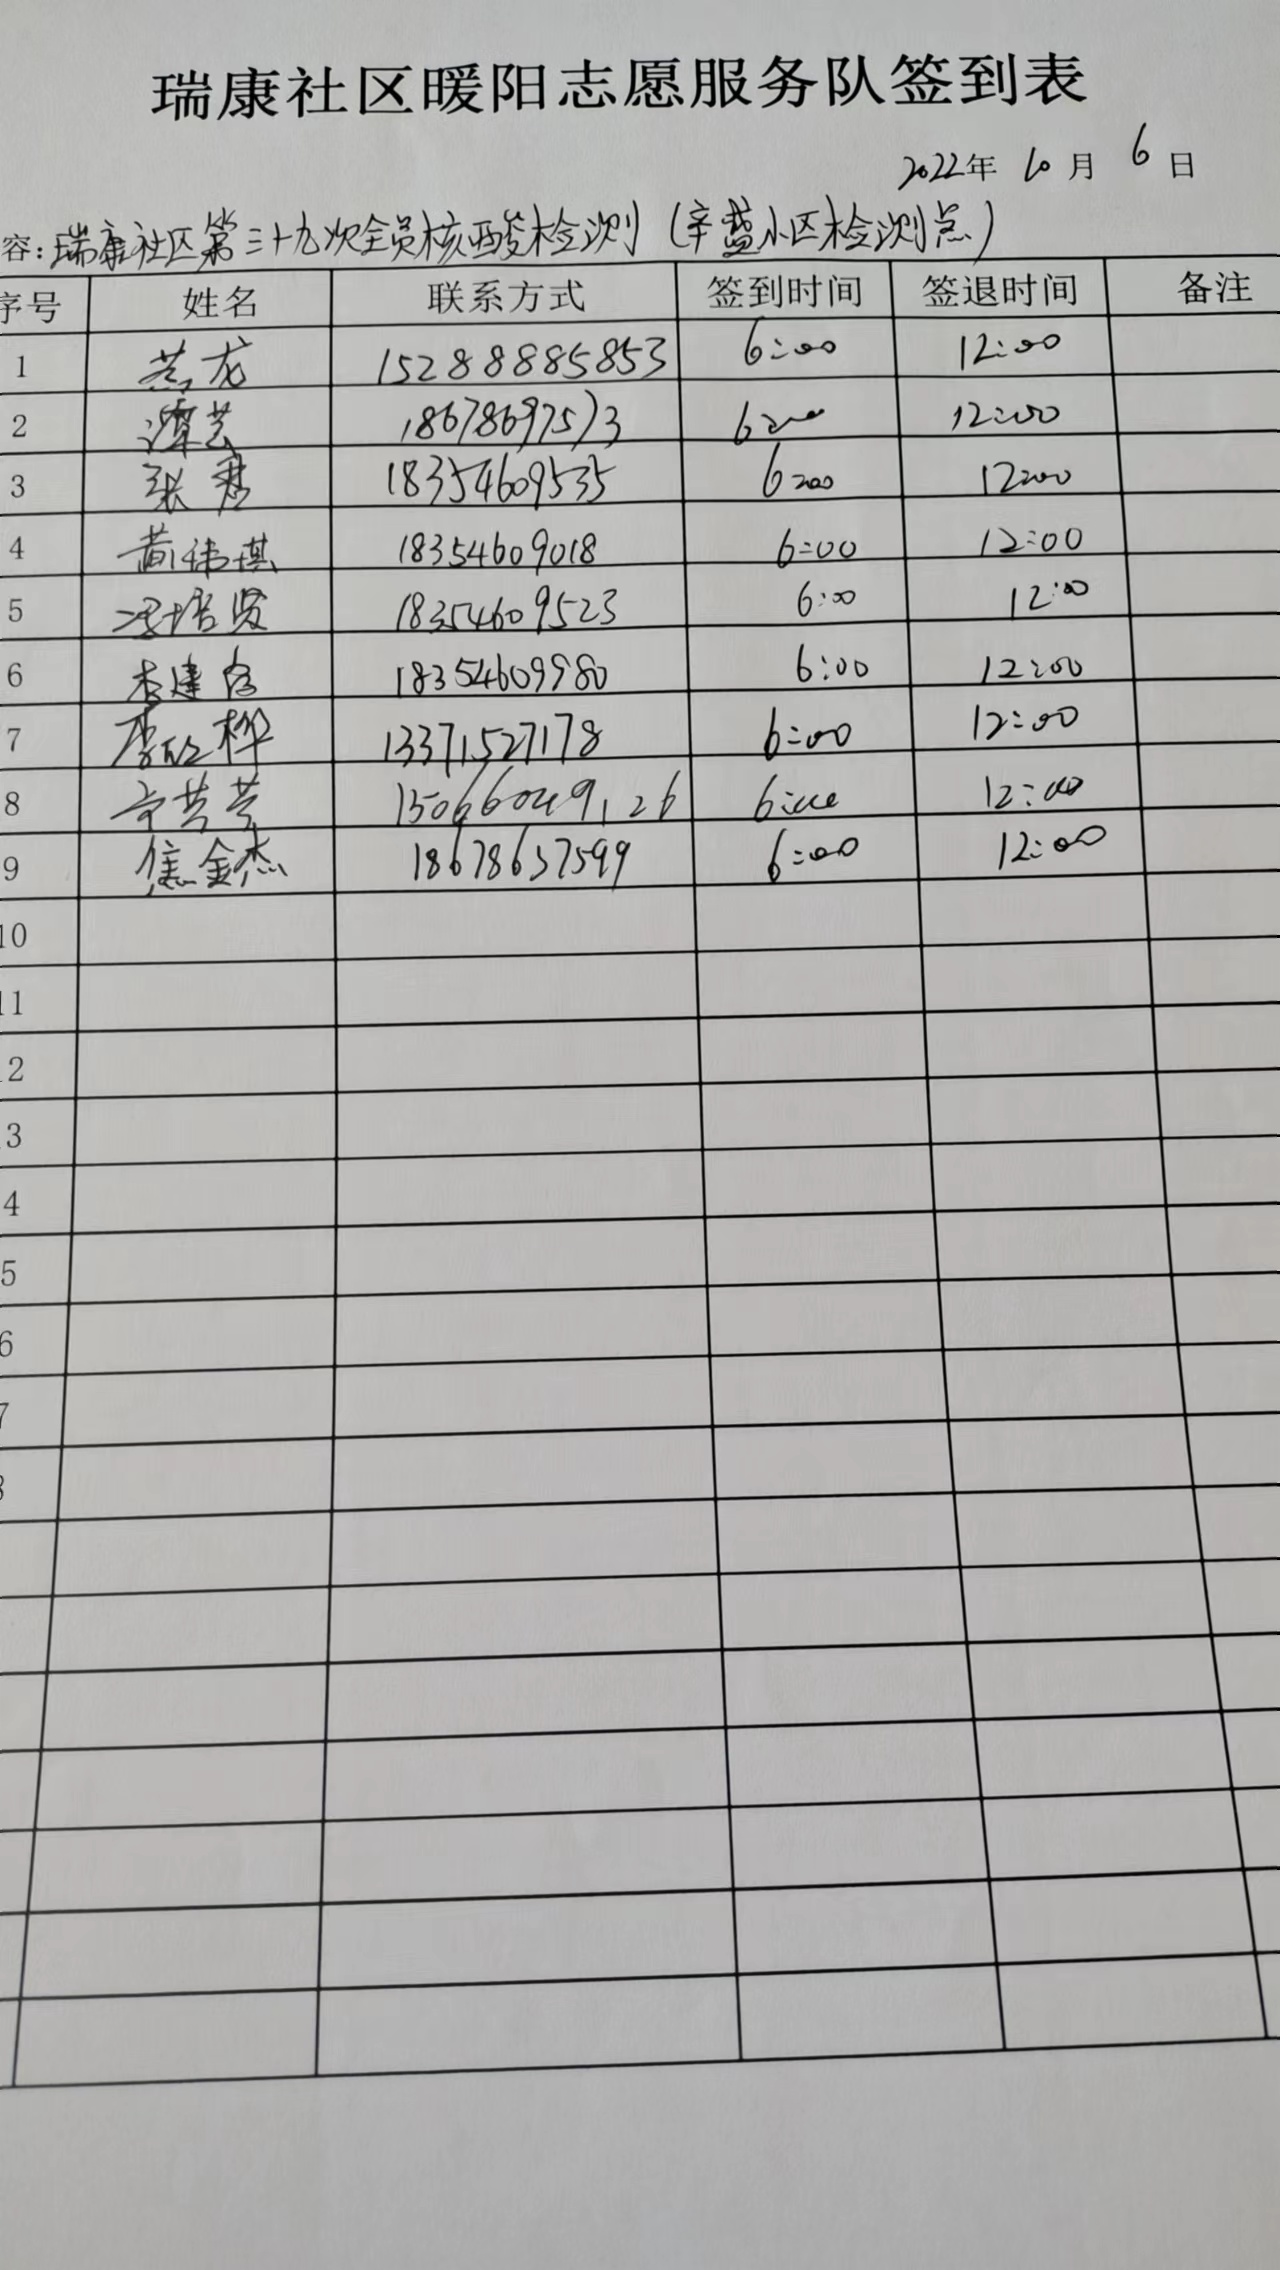 瑞康社区暖阳志愿服务队签到表
2022年 10月 6日
容:瑞康社区第三十九次全员核酸检测(辛盛小区检测点)
序号 姓名 联系方式 签到时间 签退时间 备注
1 龙 15288885853 6:00 12:00
2 谭芸 18678697573 6:00 12:00
3 张君 18354609535 6:00 12:00
4 黄伟琪 18354609018 6:00 12:00
5 冯培贤 18354609523 6:00 12:00
6 李建 18354609980 6:00 12:00
7 李欣桦 13371527178 6:00 12:00
8 15066049126 6:00 12:00
9 焦金杰 18678637599 6:00 12:00
10
11
12
13
14
15
16
17
18